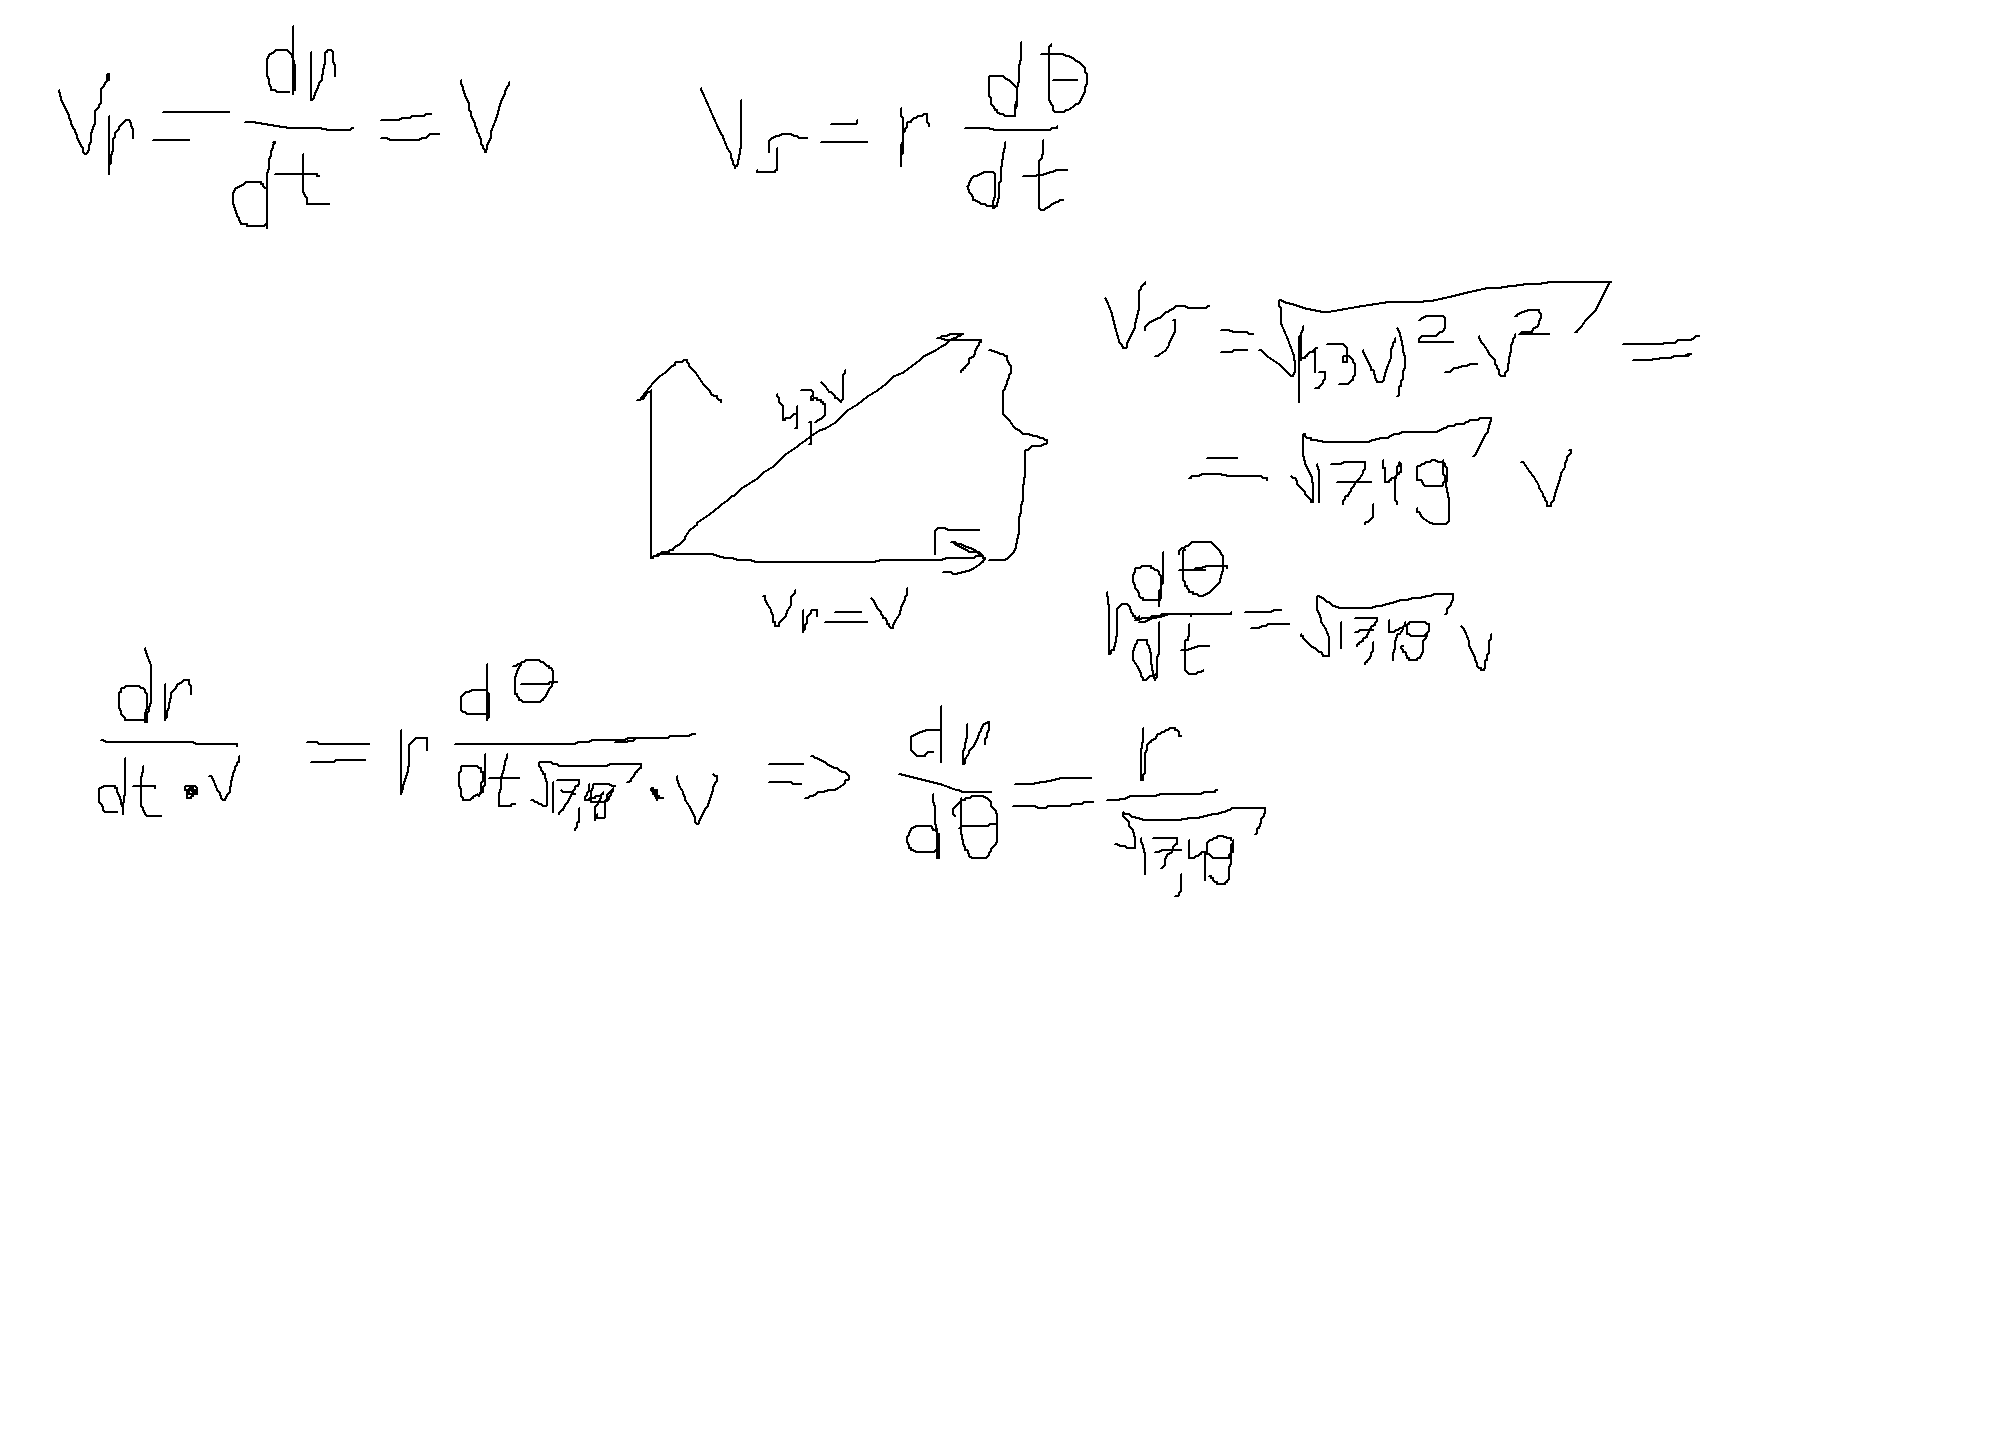 Vr = dr/dt = V
Vτ = r dθ/dt
Vτ = √((4,3V)² - V²) =
4,3V
= √17,49 V
Vr = V
r dθ/dt = √17,49 V
dr/(dt · V) = r dθ/(dt √17,49 · V) => dr/dθ = r/√17,49